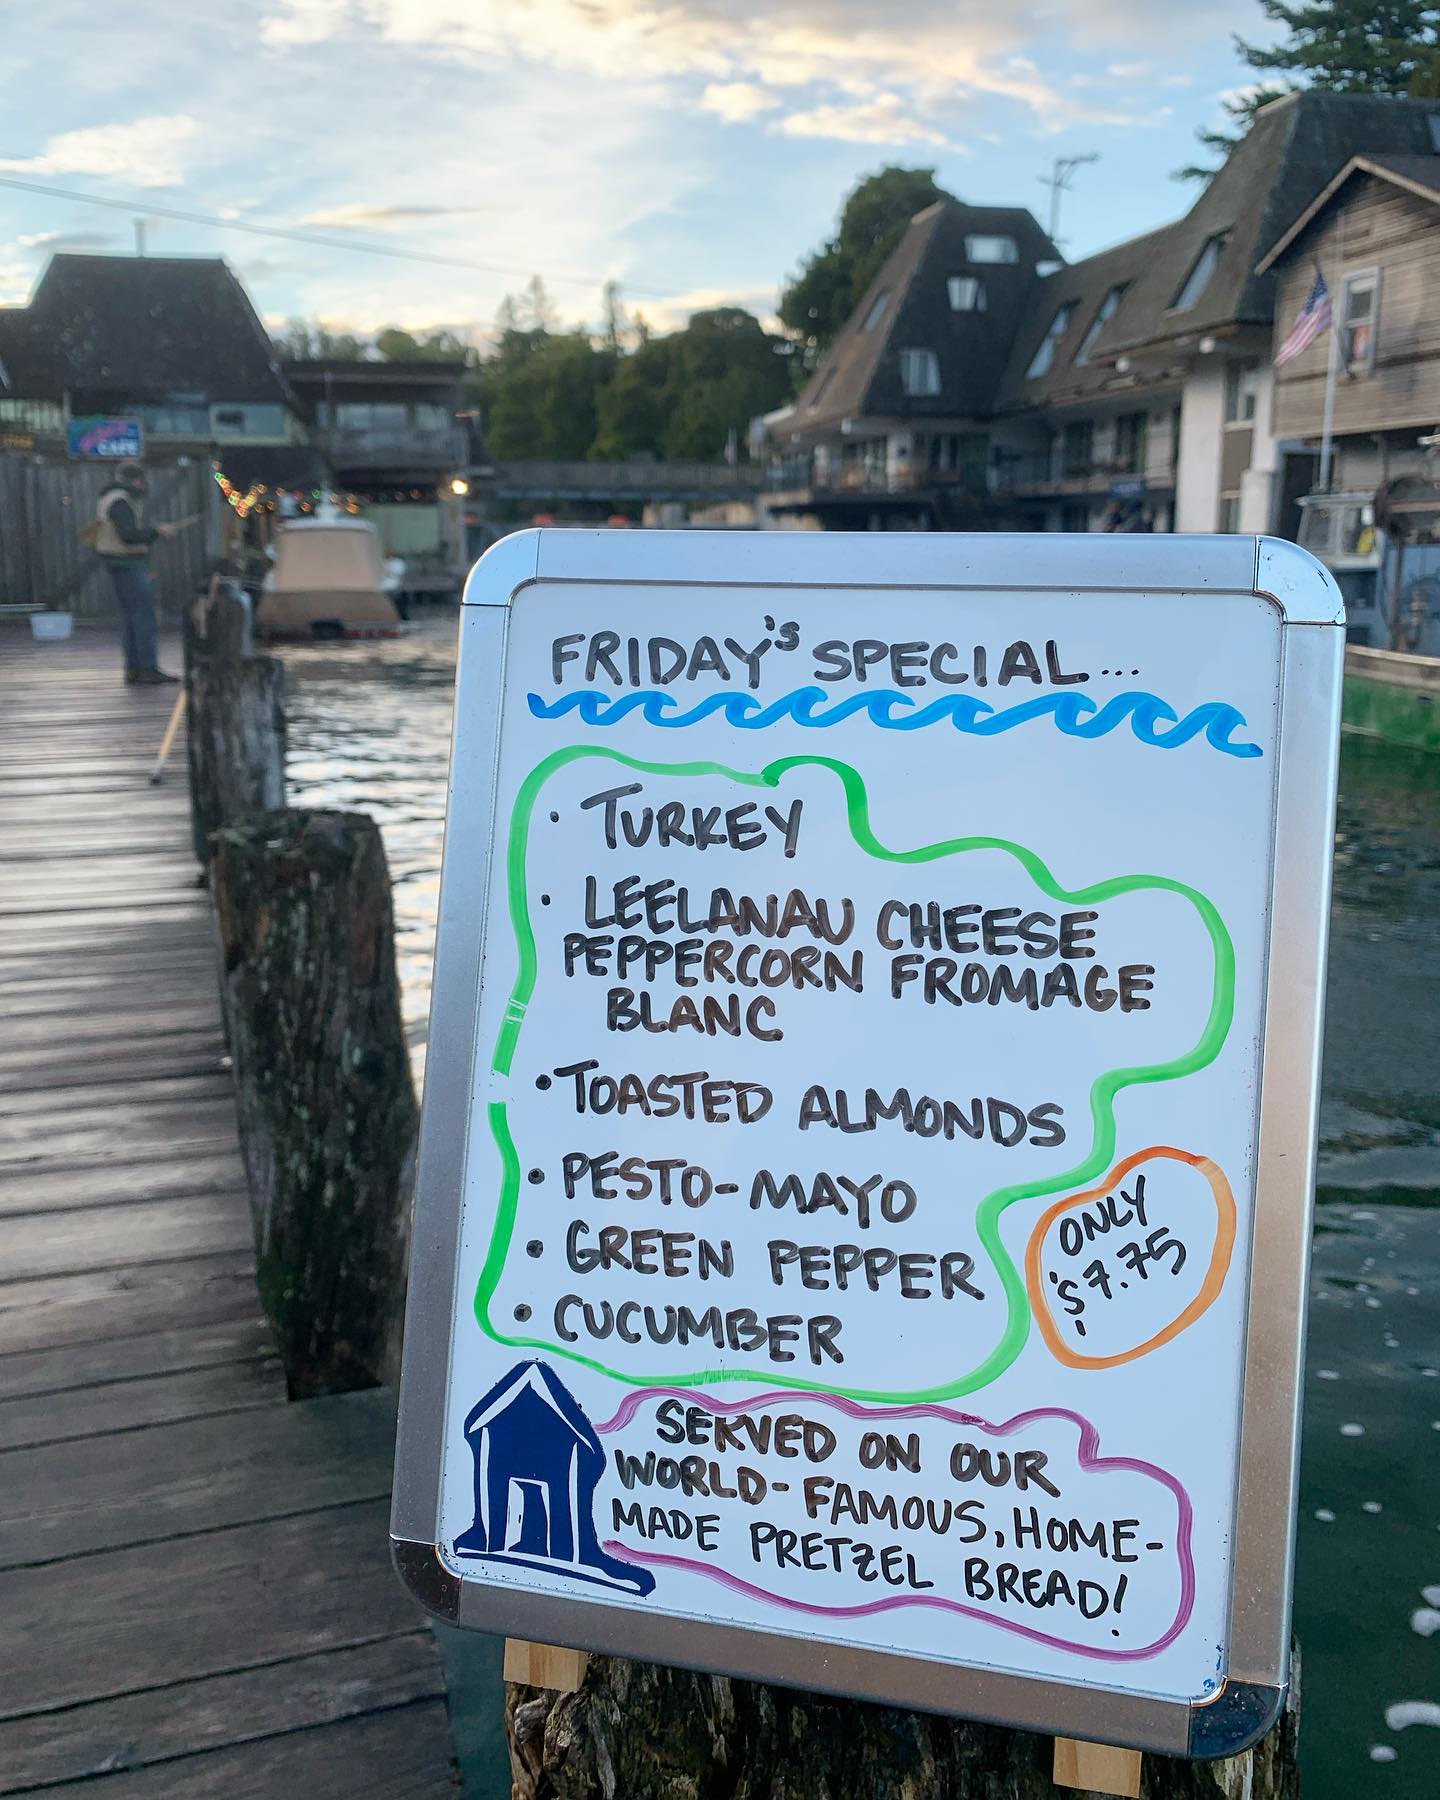 FRIDAY's SPECIAL...
• TURKEY
• LEELANAU CHEESE
PEPPERCORN FROMAGE
BLANC
• TOASTED ALMONDS
• PESTO-MAYO
• GREEN PEPPER
• CUCUMBER
ONLY
$7.75
SERVED ON OUR
WORLD-FAMOUS, HOME-
MADE PRETZEL BREAD!
CAFE